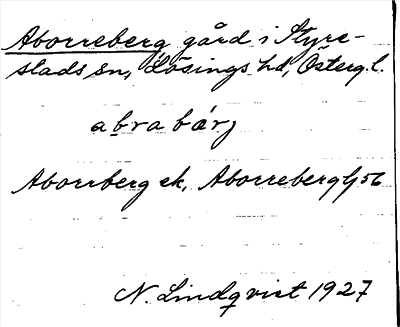 Aborreberg gård i Styre-
stads sn, Lösings hd, Österg. l.
abrabärj
Aborrberg ek, Aborreberg Gj 56
N. Lindqvist 1927